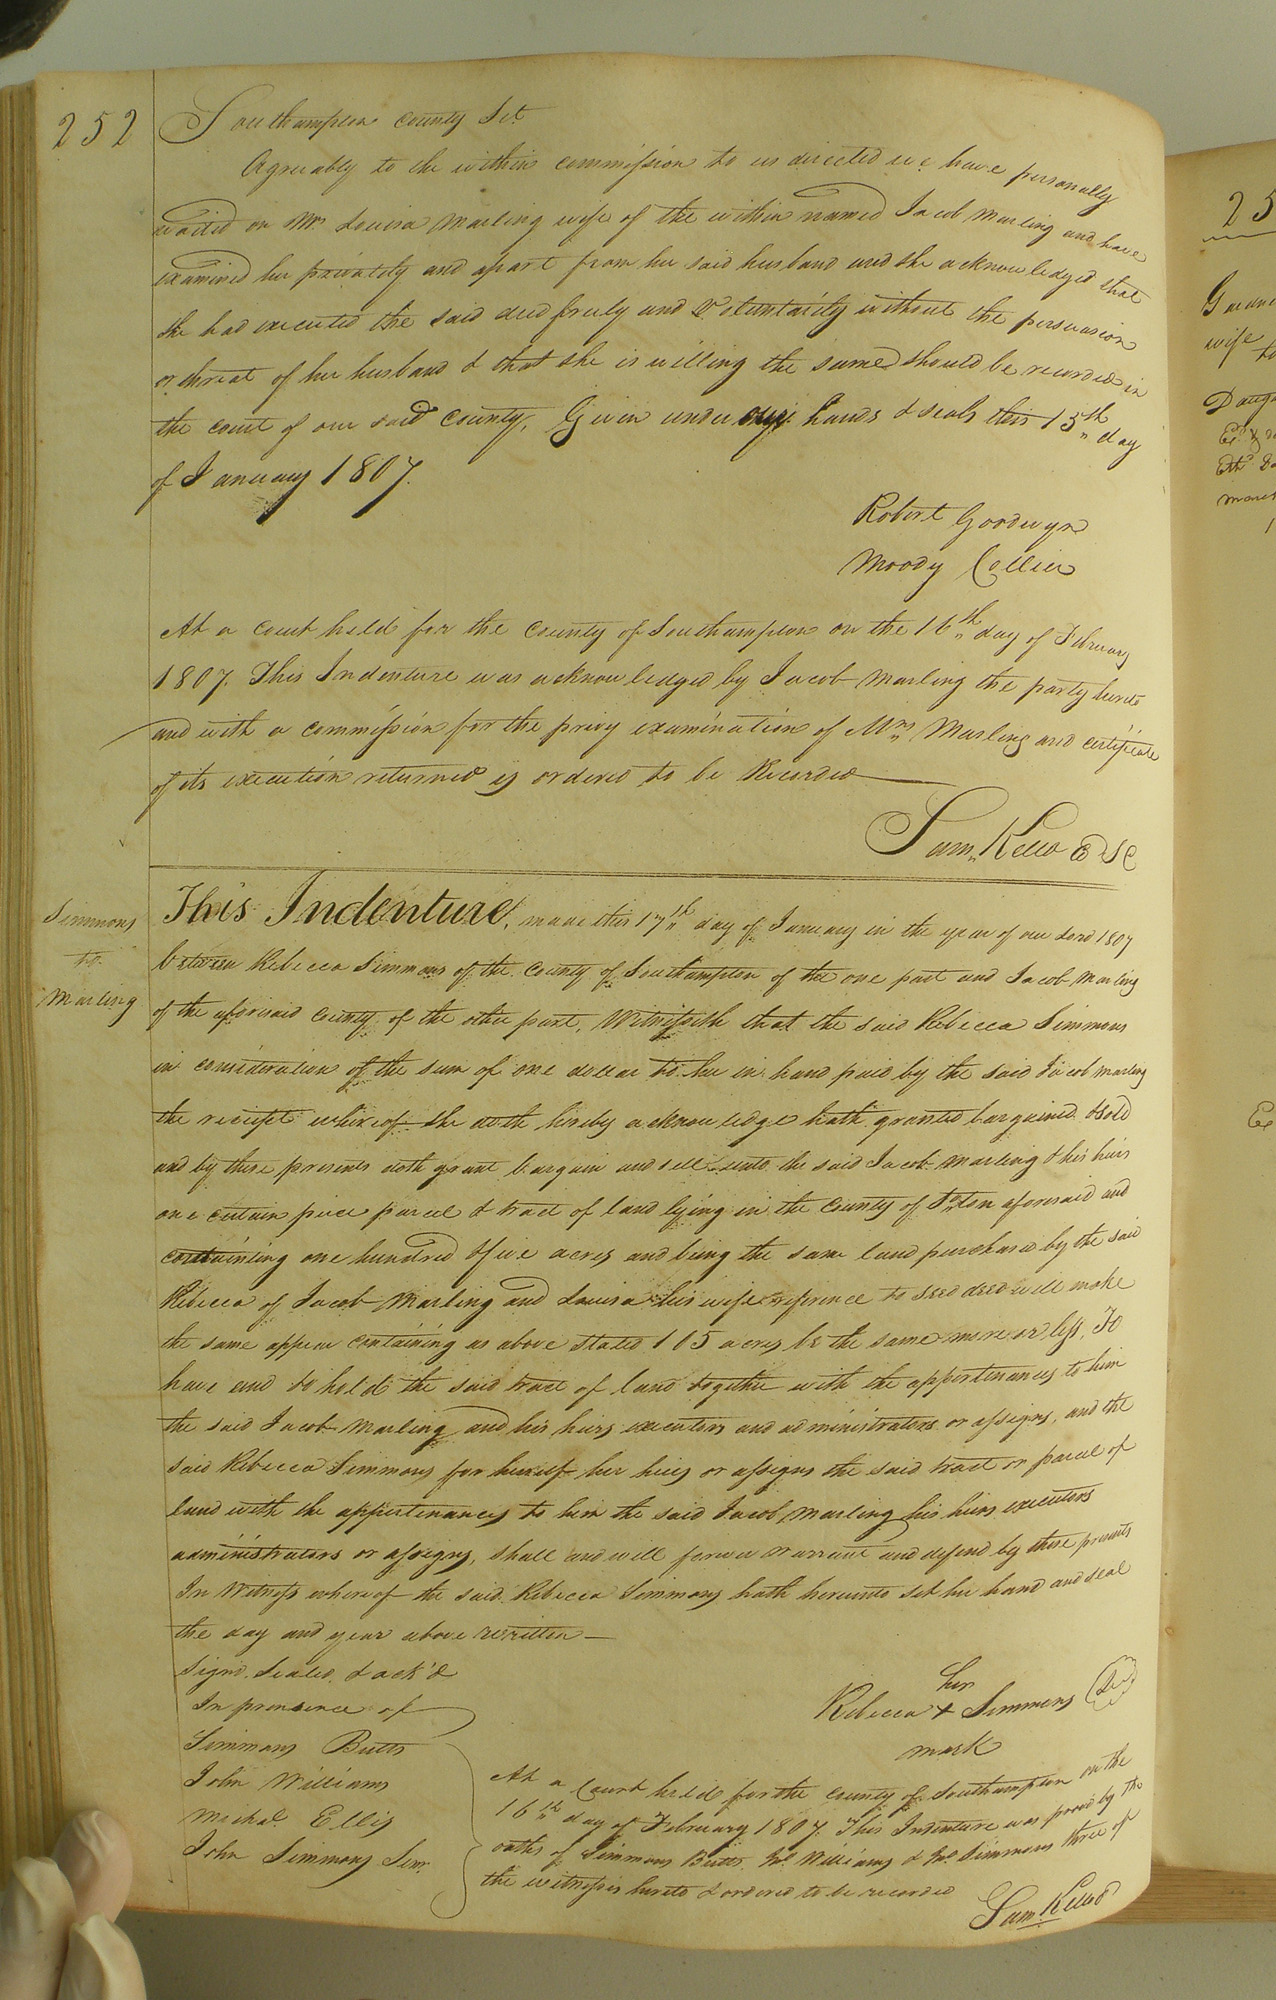 252
Southampton County Sct.
Agreeably to the within commission to us directed we have personally
waited on Mrs Louisa Marling wife of the within named Jacob Marling and have
examined her privately and apart from her said husband and she acknowledged that
she had executed the said deed freely and Voluntarily without the persuasion
or threat of her husband & that she is willing the same should be recorded in
the court of our said County. Given under our hands & seals this 15th day
of January 1807.
Robert Goodwyn
Moody Collier
At a court held for the County of Southampton on the 16th day of February
1807. This Indenture was acknowledged by Jacob Marling the party hereto
and with a commission for the privy examination of Mrs Marling and certificate
of its execution returned is ordered to be Recorded
Sam. Kello
Simmons
to
Marling
This Indenture, made this 17th day of January in the year of our Lord 1807
between Rebecca Simmons of the County of Southampton of the one part and Jacob Marling
of the aforesaid County of the other part, Witnesseth that the said Rebecca Simmons
in consideration of the sum of one dollar to her in hand paid by the said Jacob Marling
the receipt whereof she doth hereby acknowledge hath granted bargained & sold
and by these presents doth grant bargain and sell unto the said Jacob Marling & his heirs
one certain piece parcel & tract of land lying in the County of Sºton aforesaid and
containing one hundred & five acres and being the same land purchased by the said
Rebecca of Jacob Marling and Louisa his wife reference to said deed will make
the same appear containing as above stated 105 acres be the same more or less, To
have and to hold the said tract of land together with the appertinances to him
the said Jacob Marling and his heirs executors and administrators or assigns, and the
said Rebecca Simmons for herself her heirs or assigns the said tract or parcel of
land with the appertinances to him the said Jacob Marling his heirs executors
administrators or assigns, shall and will forever warrant and defend by these presents
In Witness whereof the said Rebecca Simmons hath hereunto set her hand and seal
the day and year above written
Signd. Sealed & ack'd
In presence of
Simmons Butts
John Williams
Michal Ellis
John Simmons Senr.
her
Rebecca + Simmons
mark
At a Court held for the County of Southampton on the
16th day of February 1807. This Indenture was proved by the
oaths of Simmons Butts, Jno Williams & Jno Simmons three of
the witnesses hereto & ordered to be recorded
Sam. Kello
25
wife
to